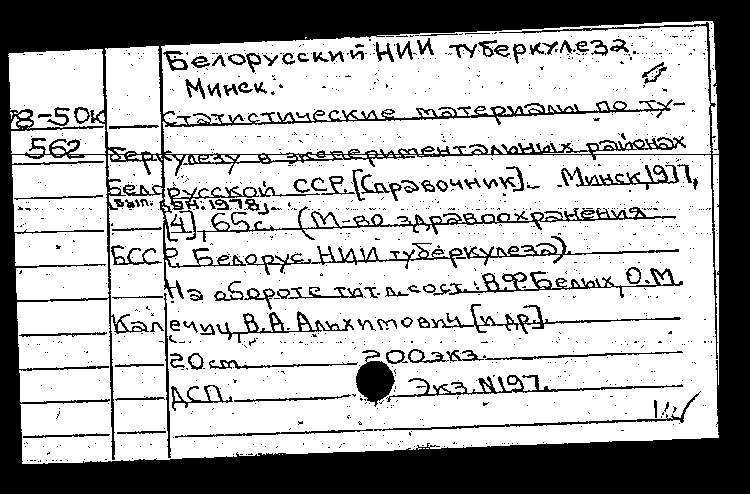 Белорусский НИИ туберкулеза.
Минск.
78-50к Статистические материалы по ту-
562 беркулезу в экспериментальных районах
Белорусской ССР. [Справочник]. Минск, 1977,
[вып. дан. 1978].
[4], 65с. (М-во здравоохранения
БССР. Белорус. НИИ туберкулеза).
На обороте тит.л. сост.: В.Ф.Белых, О.М.
Калечиц, В.А.Альхимович [и др].
20см. 200экз.
ДСП. Экз.N197.